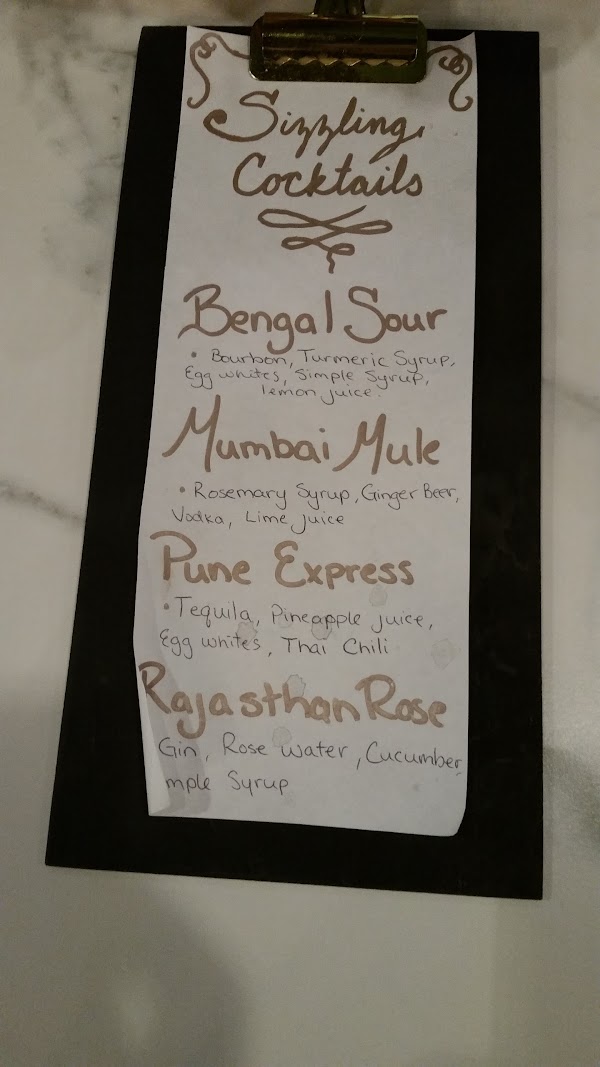 Sizzling
Cocktails
Bengal Sour
• Bourbon, Turmeric Syrup,
Egg whites, Simple Syrup,
lemon juice.
Mumbai Mule
• Rosemary Syrup, Ginger Beer,
Vodka, Lime juice
Pune Express
• Tequila, Pineapple juice,
Egg whites, Thai Chili
Rajasthan Rose
Gin, Rose water, Cucumber,
mple Syrup